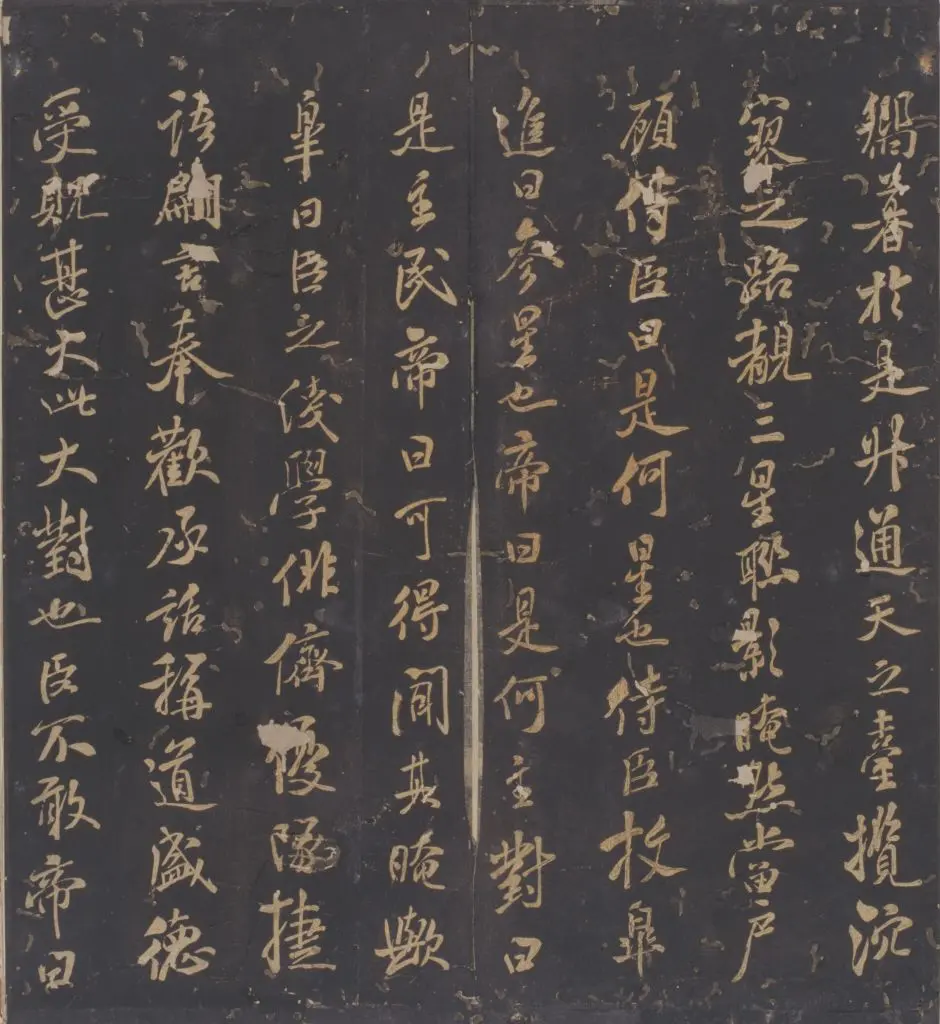 於是升通天之臺攬泬
寥之路覩三星聯影晻當户
顧侍臣曰是何星也侍臣枚皋
進曰參星也帝曰是何主對曰
是主民帝曰可得聞其晻歟
皋曰臣之淺學俳儕優隊捷
語翩言奉歡承話稱道盛德
受貺甚大此大對也臣不敢帝曰